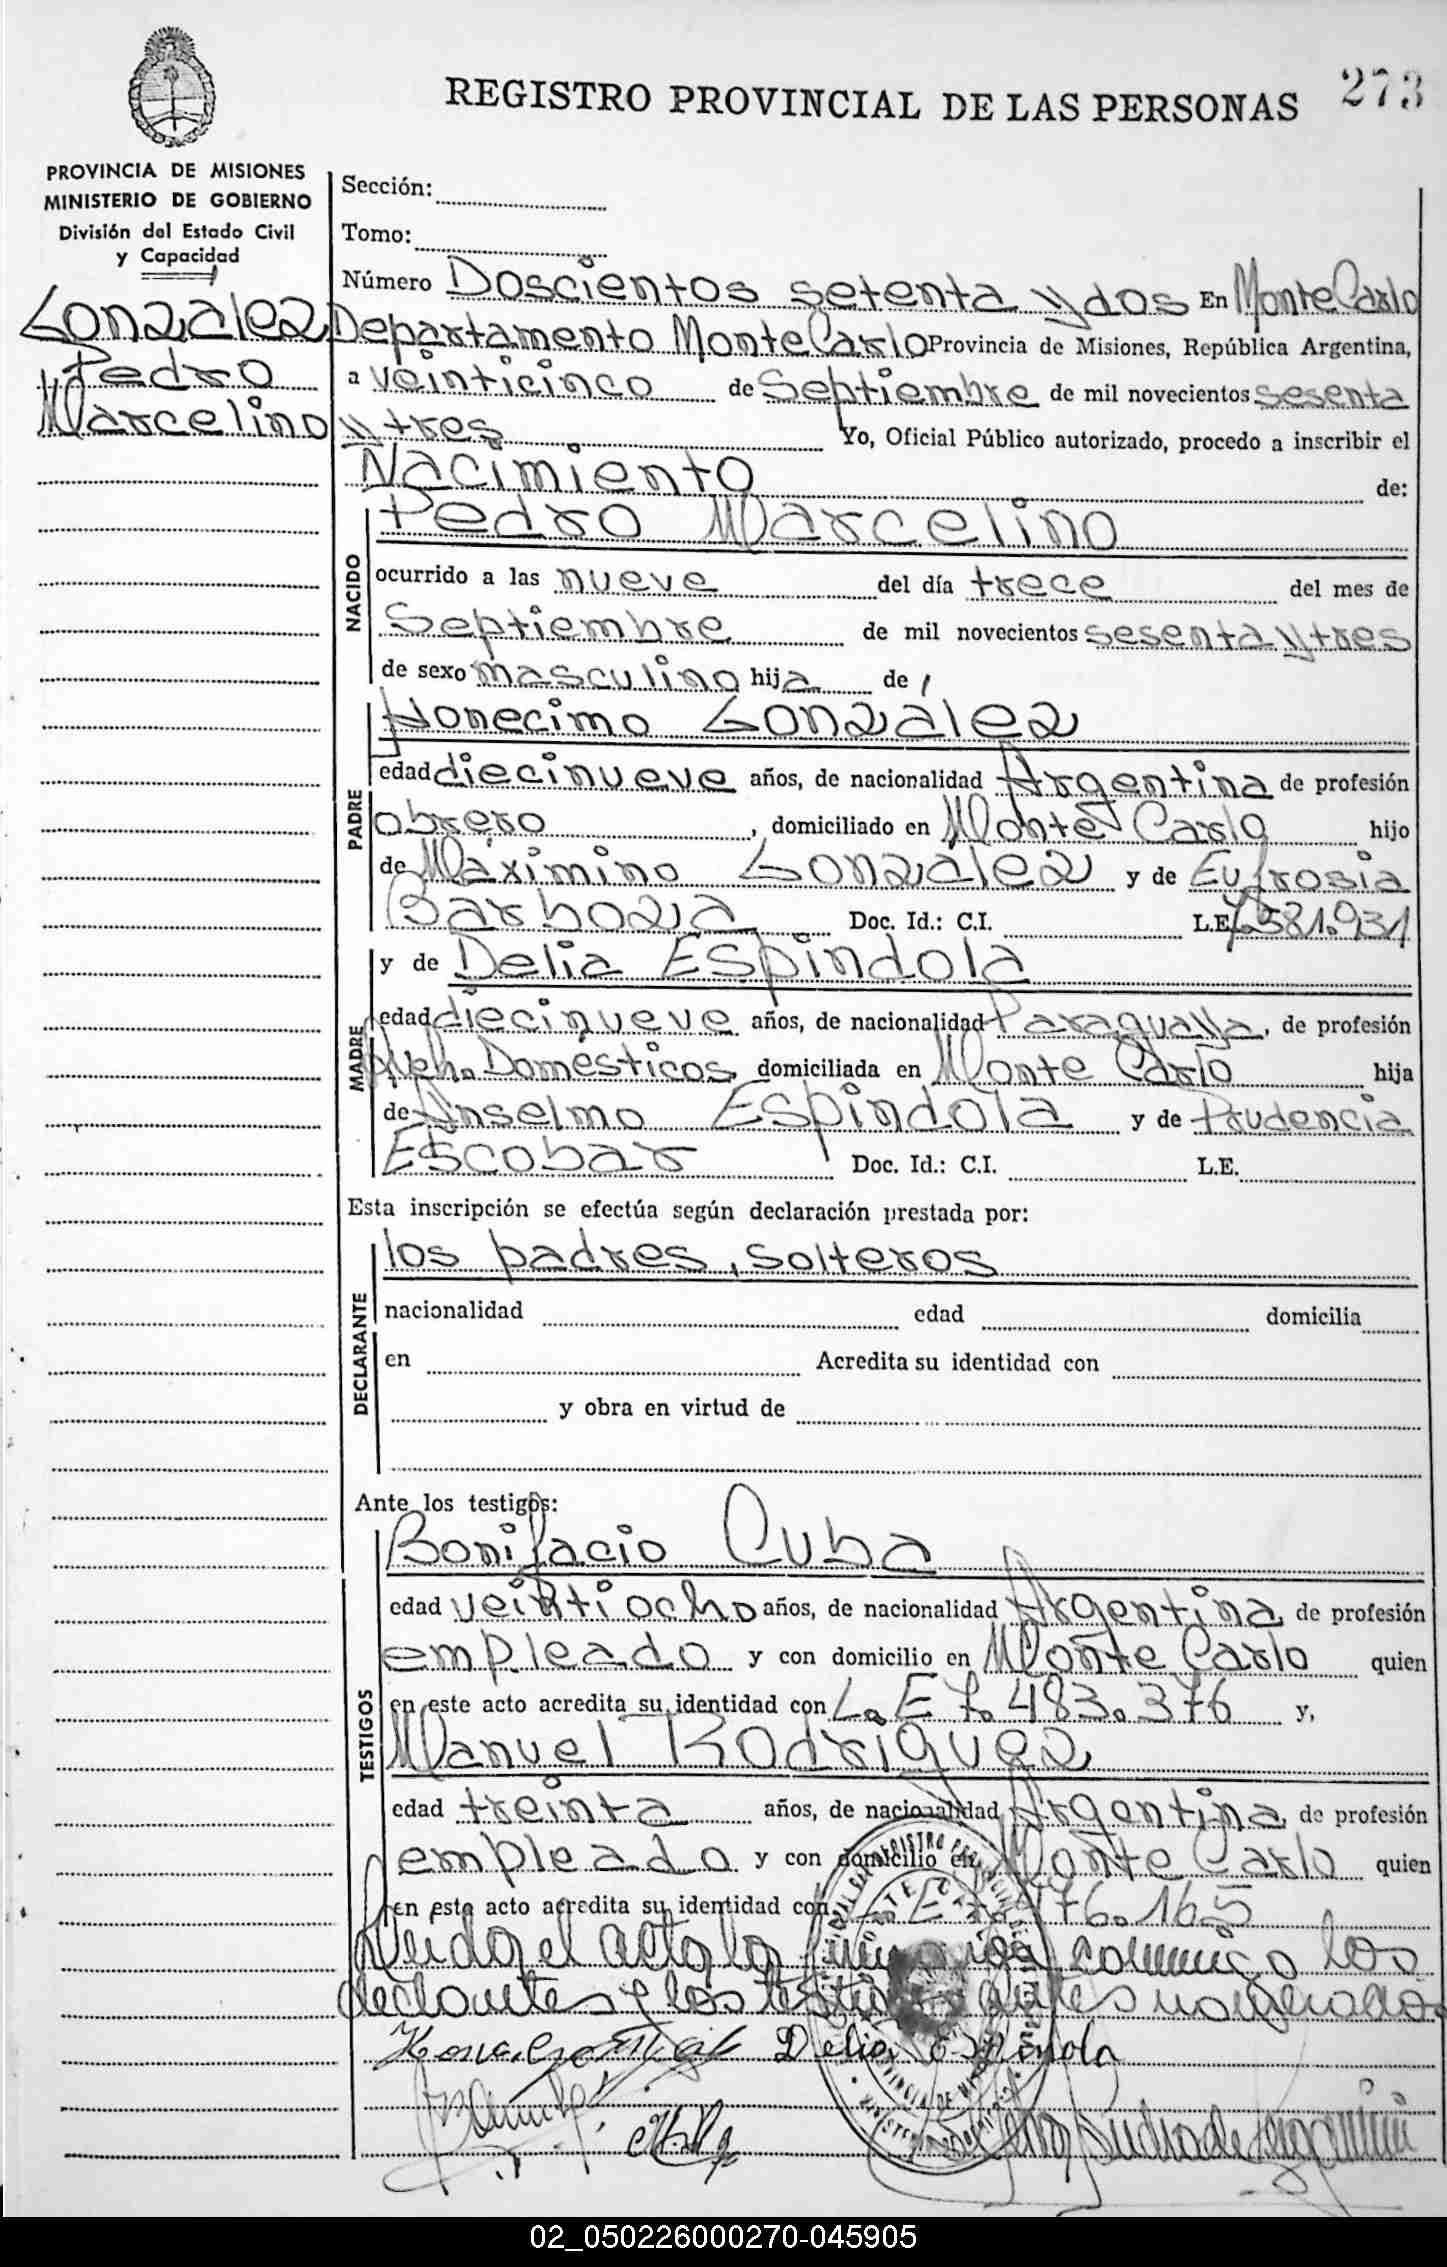 REGISTRO PROVINCIAL DE LAS PERSONAS 273
PROVINCIA DE MISIONES
MINISTERIO DE GOBIERNO
División del Estado Civil
y Capacidad
Gonzalez
Pedro
Marcelino
Sección:
Tomo:
Número Doscientos setenta y dos En Monte Carlo
Departamento Monte Carlo Provincia de Misiones, República Argentina,
a veinticinco de Septiembre de mil novecientos sesenta
y tres Yo, Oficial Público autorizado, procedo a inscribir el
Nacimiento de:
Pedro Marcelino
NACIDO
ocurrido a las nueve del día trece del mes de
Septiembre de mil novecientos sesenta y tres
de sexo masculino hija de
Honecimo González
PADRE
edad diecinueve años, de nacionalidad Argentina de profesión
obrero, domiciliado en Monte Carlo hijo
de Máximino González y de Eufrosia
Barboza Doc. Id.: C.I. L.E. 7.581.931
y de Delia Espindola
MADRE
edad diecinueve años, de nacionalidad Paraguaya, de profesión
Domésticos domiciliada en Monte Carlo hija
de Anselmo Espindola y de Prudencia
Escobar Doc. Id.: C.I. L.E.
Esta inscripción se efectúa según declaración prestada por:
los padres, solteros
DECLARANTE
nacionalidad edad domicilia
en Acredita su identidad con
y obra en virtud de
Ante los testigos:
Bonifacio Cuba
TESTIGOS
edad veintiocho años, de nacionalidad Argentina de profesión
empleado y con domicilio en Monte Carlo quien
en este acto acredita su identidad con L.E 7.483.376 y,
Manuel Rodriguez
edad treinta años, de nacionalidad Argentina de profesión
empleado y con domicilio en Monte Carlo quien
en este acto acredita su identidad con L.E 76.165
el acta comigo los
y los antes
Delia Espindola
02_050226000270-045905